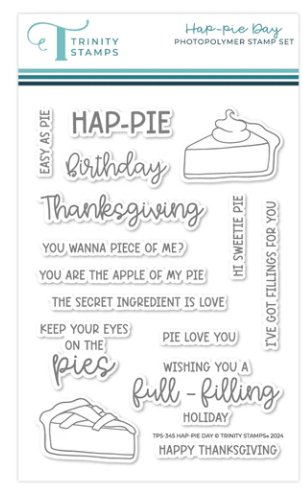 TRINITY
STAMPS
Hap-pie Day
PHOTOPOLYMER STAMP SET
EASY AS PIE
HAP-PIE
Birthday
Thanksgiving
YOU WANNA PIECE OF ME?
YOU ARE THE APPLE OF MY PIE
HI SWEETIE PIE
I'VE GOT FILLINGS FOR YOU
THE SECRET INGREDIENT IS LOVE
KEEP YOUR EYES
ON THE
pies
PIE LOVE YOU
WISHING YOU A
full-filling
HOLIDAY
TPS-345 HAP-PIE DAY © TRINITY STAMPS® 2024
HAPPY THANKSGIVING